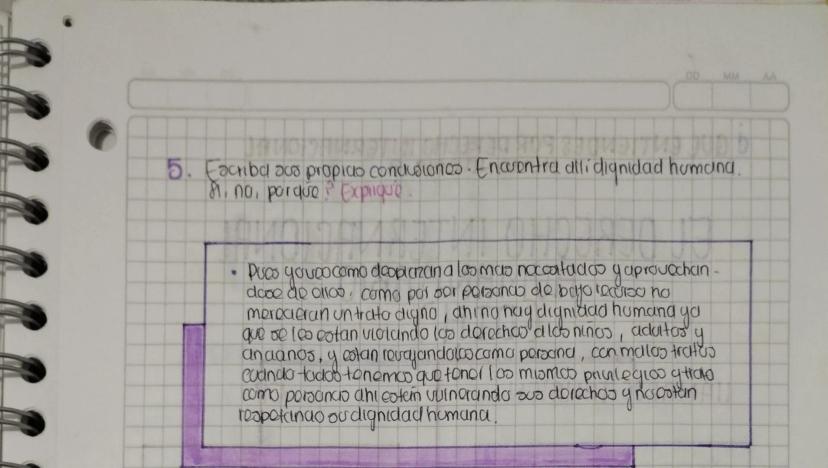 DD MM AA
5. Escriba sus propias conclusiones. Encuentra alli dignidad humana.
Si, no, porque? Explique.
• Pues yo veo como desplazan a los mas necesitados y aprovechan-
dose de ellos, como por ser personas de bajo recurso no
merecieran un trato digno, ahi no hay dignidad humana ya
que se les estan violando los derechos a los niños, adultos y
ancianos, y estan rebajandolos como persona, con malos tratos
cuando todos tenemos que tener los mismos privilegios y trato
como personas ahi estan vulnerando sus derechos y no estan
respetando su dignidad humana.